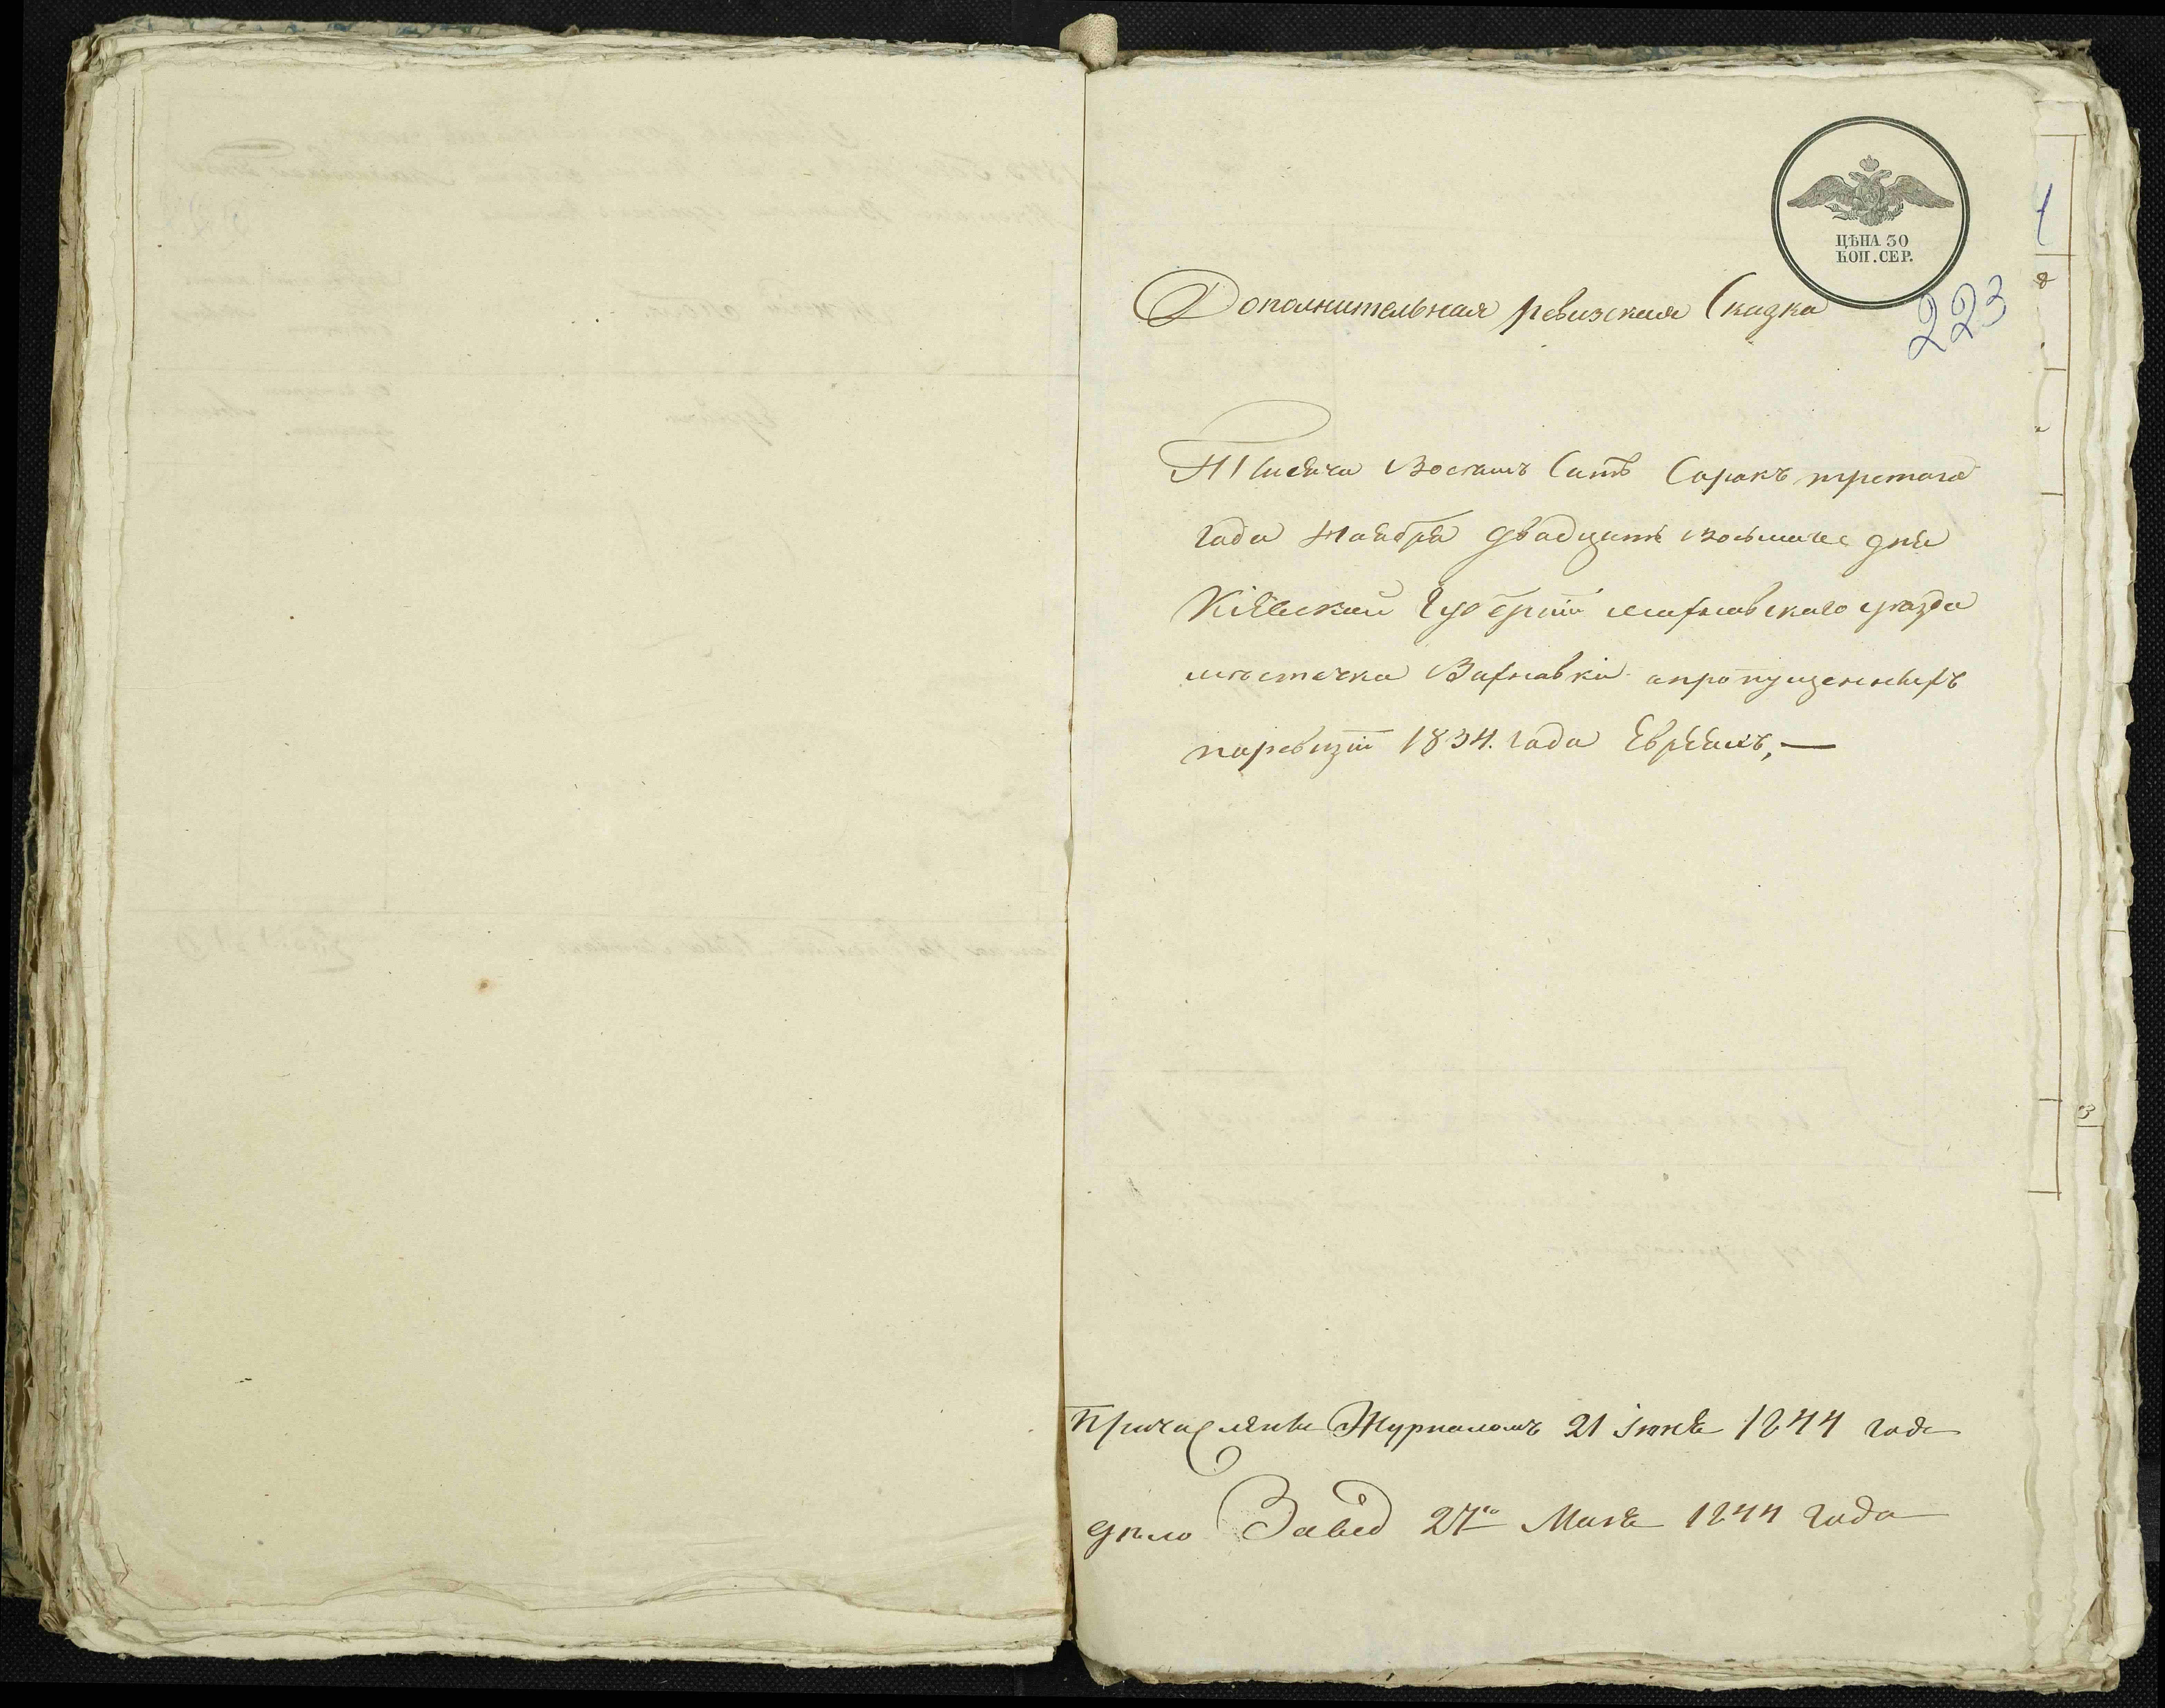 ЦѢНА 30
КОП. СЕР.
1
223
Дополнительная ревизская Сказка
Тысяча Восемь Сатъ Сорокъ третаго
года Ноября двадцать восьмаго дня
Кіевской Губерніи Махновскаго уезда
местечка Вахновки опропущенныхъ
поревизіи 1834. года Евреяхъ, —
Причислены Журналомъ 21 Іюня 1844 года
дѣло Завед 27го Мая 1844 года